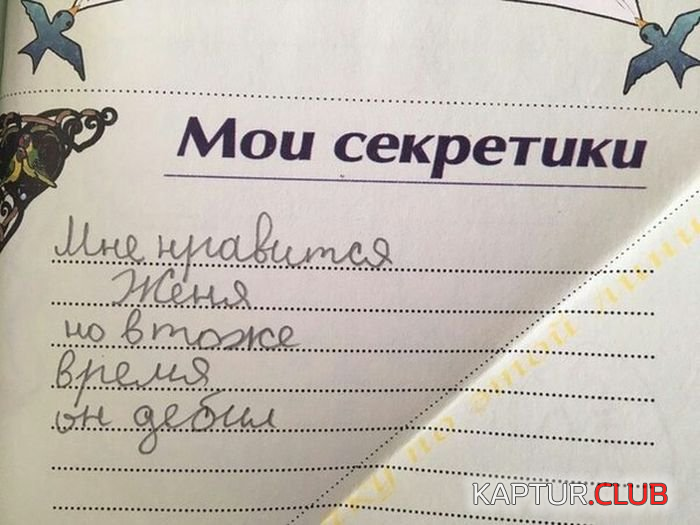 Мои секретики
Мне нравится
Женя
но в тоже
время
он дебил
этой линии
KAPTUR.CLUB